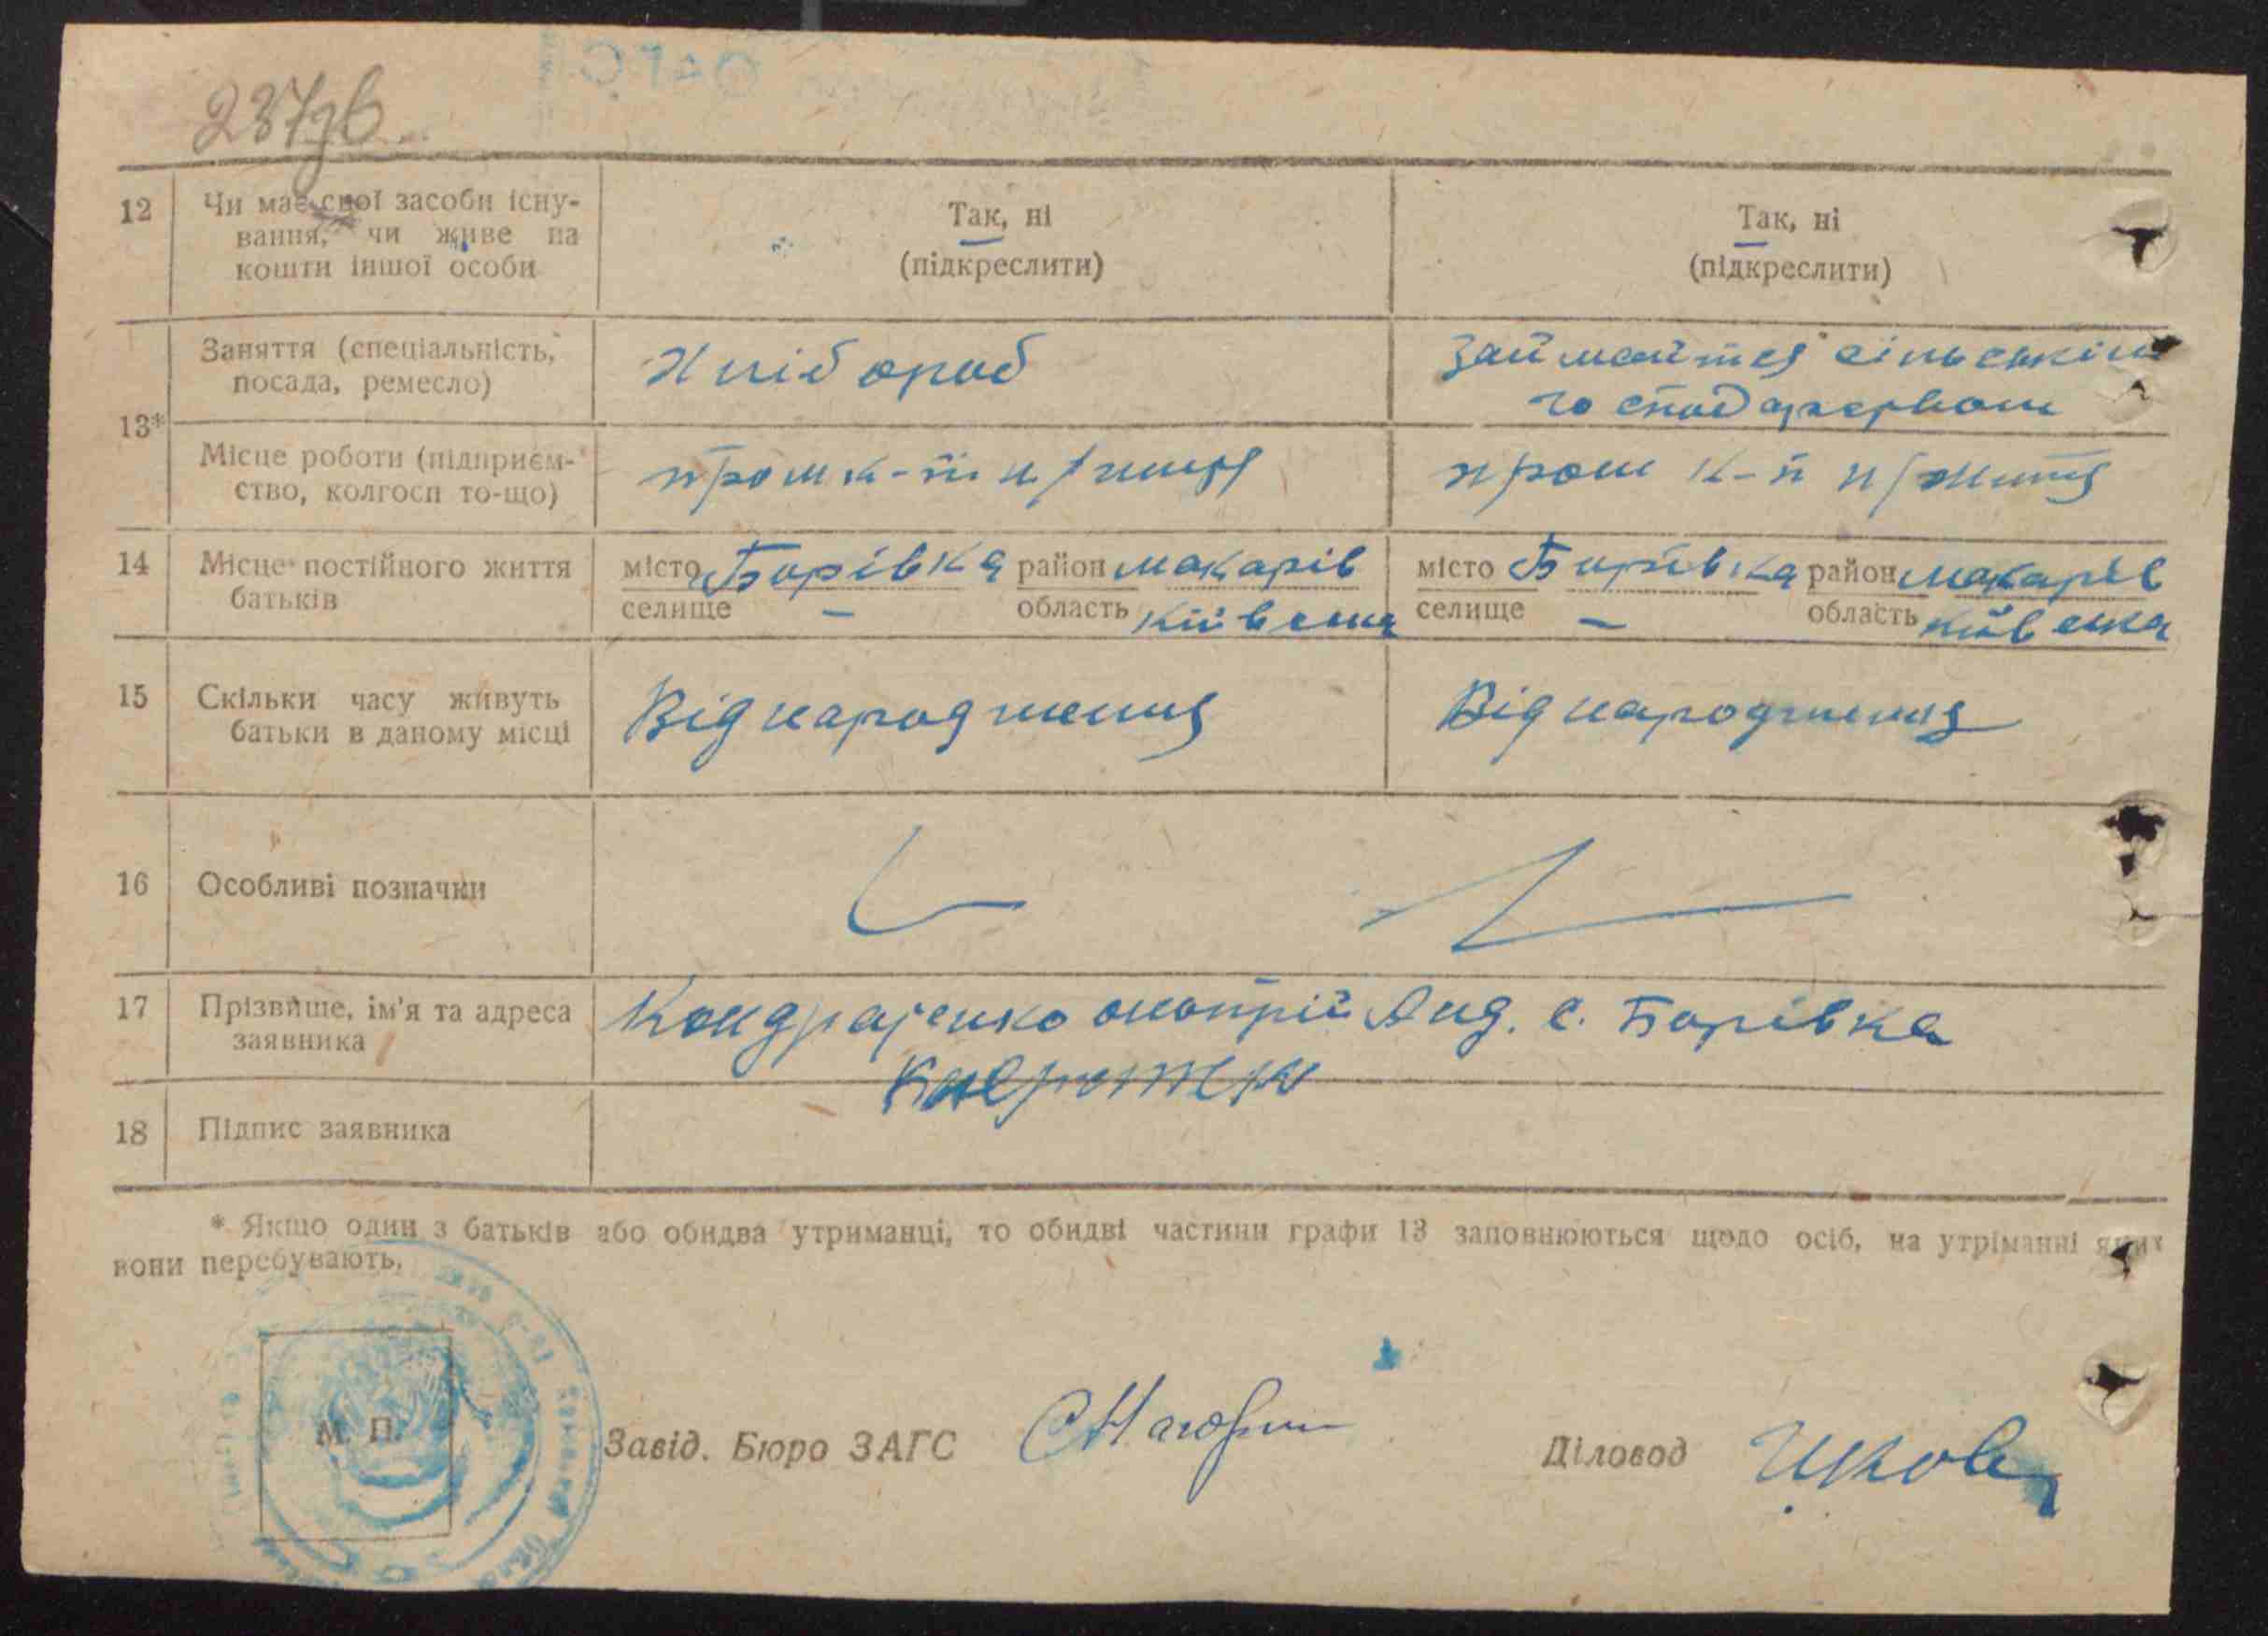 237
12 Чи має свої засоби існу- Так, ні Так, ні
вання, чи живе на (підкреслити) (підкреслити)
кошти іншої особи
13*
Заняття (спеціальність, Хлібороб займаїтся сільскім
посада, ремесло) господарством
Місце роботи (підприєм- пром к-п пром к-п
ство, колгосп то-що)
14 Місце постійного життя місто Борівка район макарів місто Борівка район макарів
батьків селище – область Київска селище – область Київска
15 Скільки часу живуть Від народження Від народження
батьки в даному місці
16 Особливі позначки
17 Прізвище, ім'я та адреса Кондратенко Анд. с. Борівка
заявника
18 Підпис заявника
* Якщо один з батьків або обидва утриманці, то обидві частини графи 13 заповнюються щодо осіб, на утріманні яких
вони перебувають.
М. П.
Завід. Бюро ЗАГС Діловод